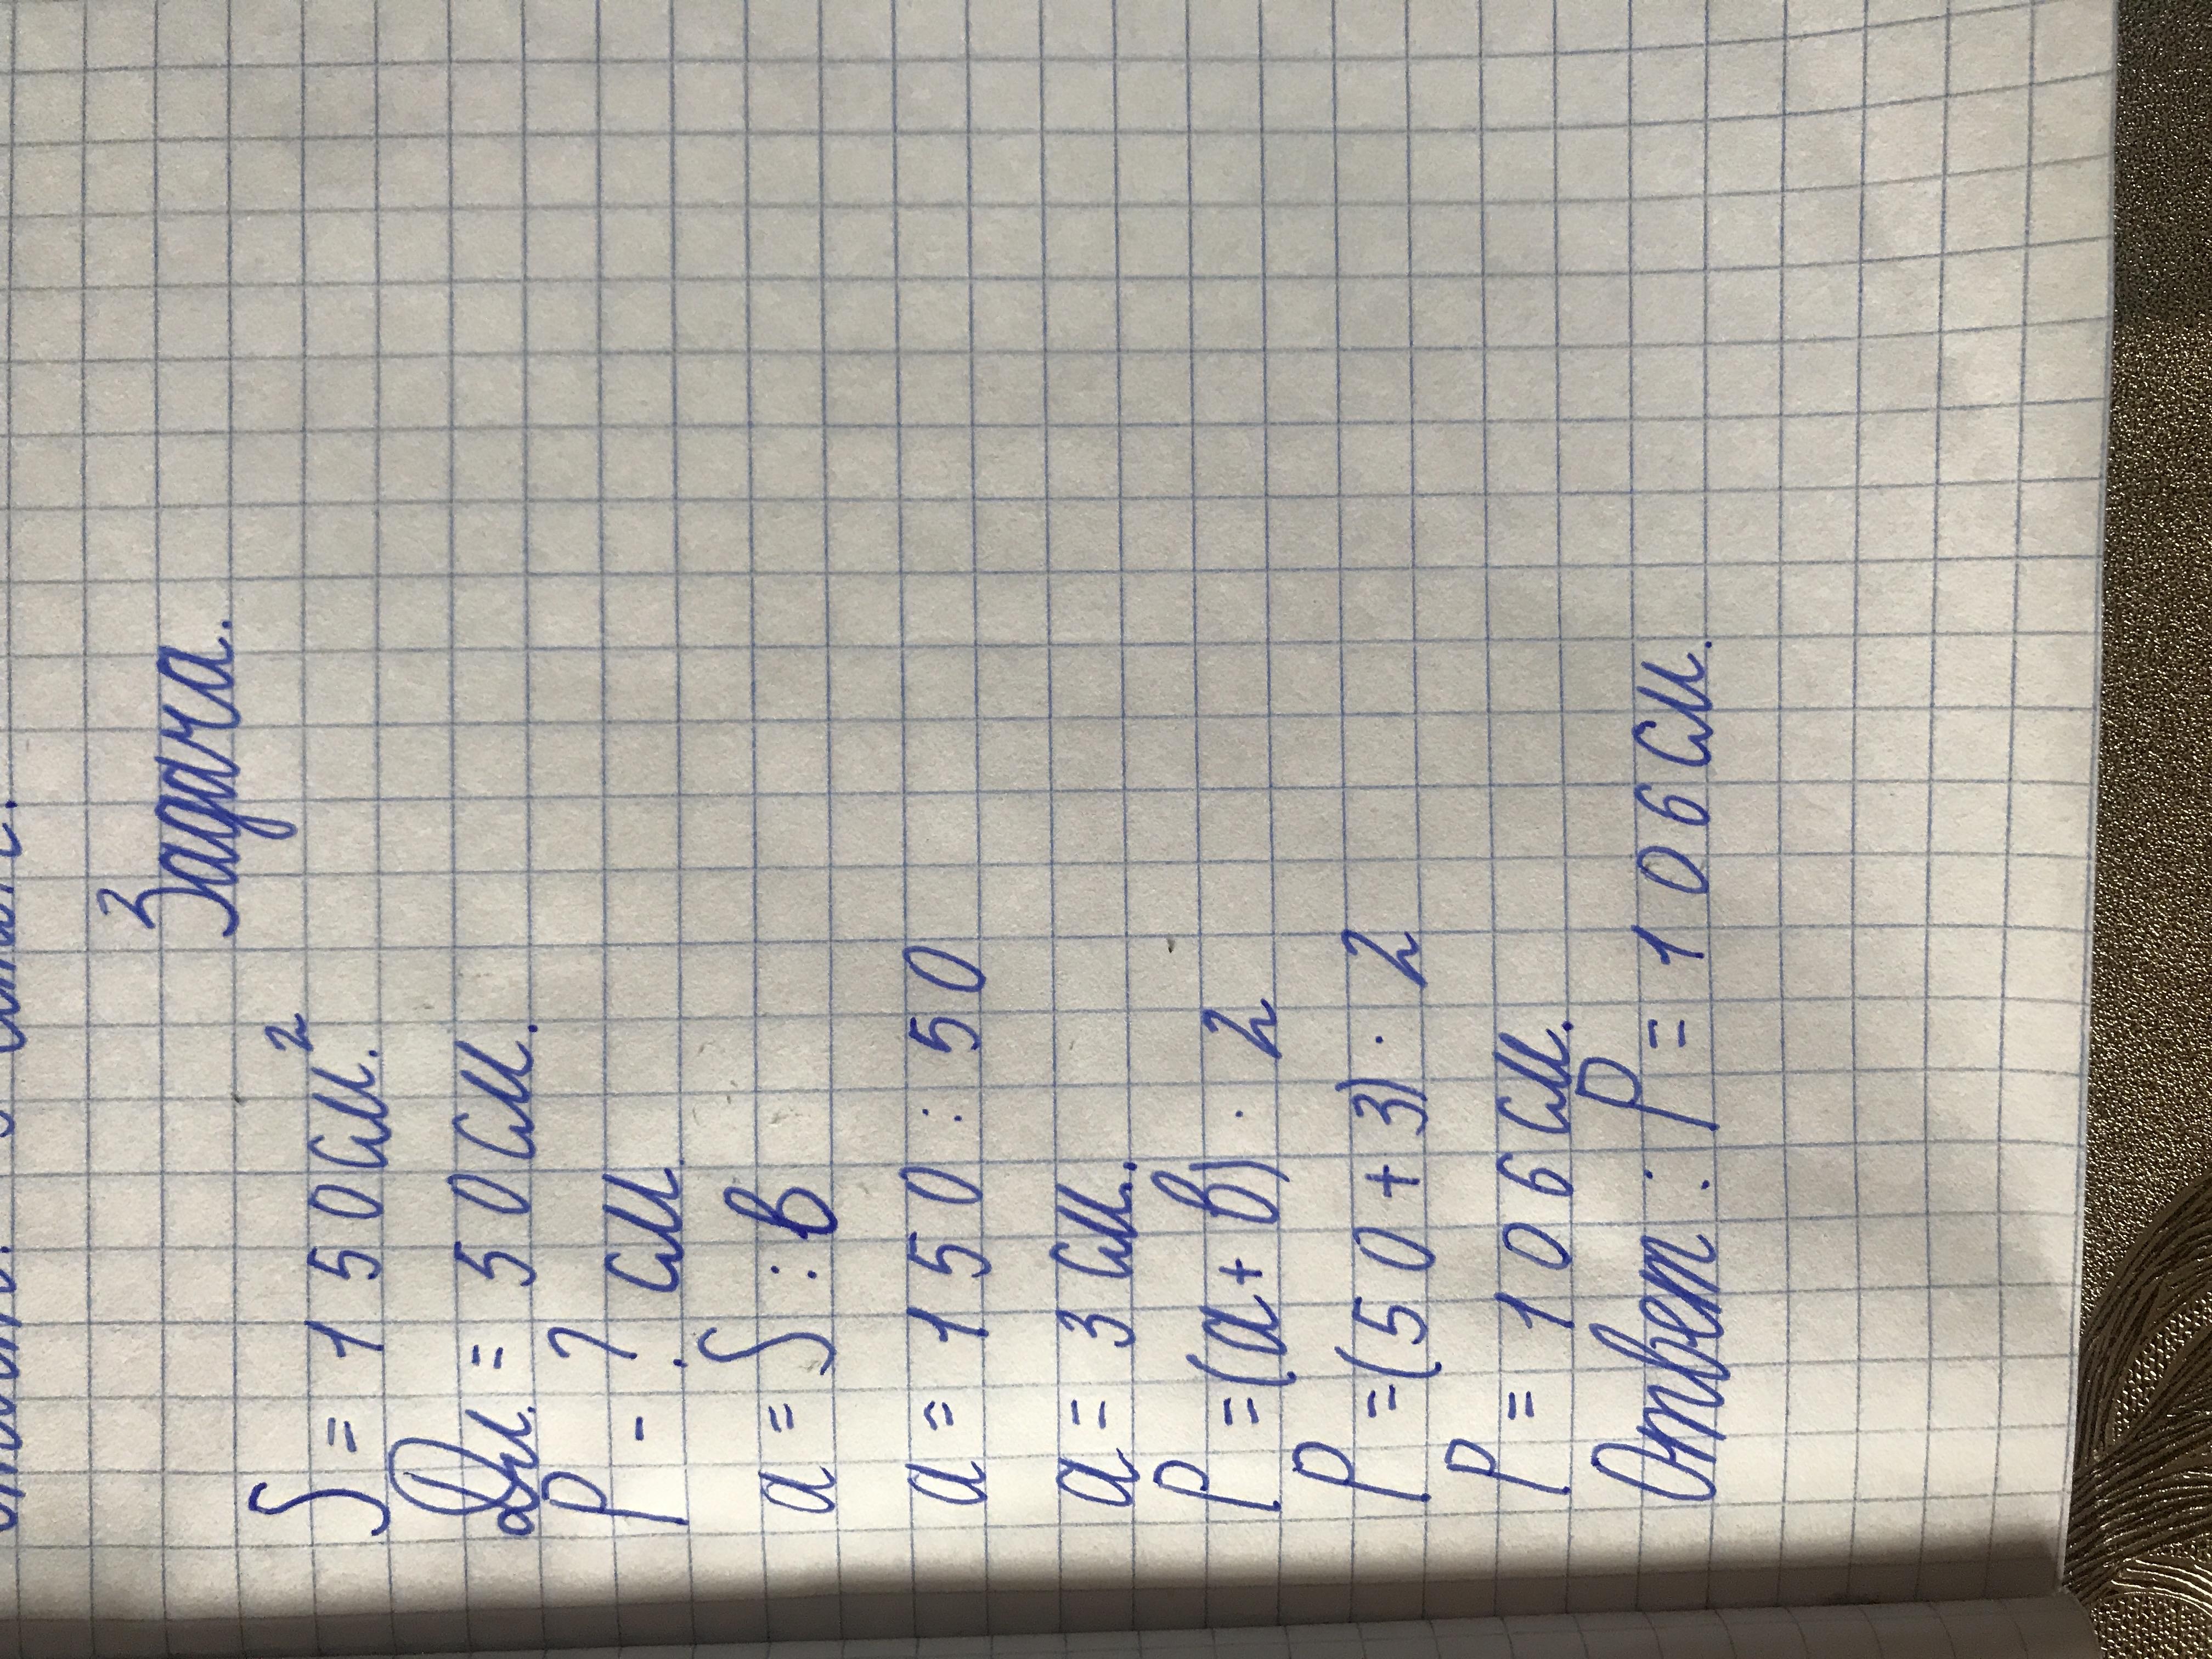 Задача.
S = 150 см.²
Дл. = 50 см.
P - ? см
a = S : в
a = 150 : 50
a = 3 см.
P = (a + в) · 2
P = (50 + 3) · 2
P = 106 см.
Ответ : P = 106 см.